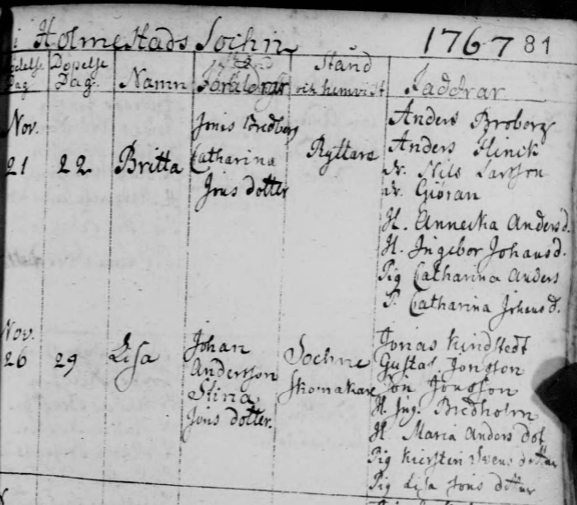 i Holmestads Sochn 1767 81
Födelse Dag Döpelse Dag. Namn Föräldrar Stånd och hemvist Faddrar
Nov. 21 22 Britta
Jonis Bredberg
Catharina
Jons dotter
Ryttare
Anders Broberg
Anders Flinck
N. Nils Larsson
N. Giöran
H. Annecka Anders d.
H. Ingebor Johans d.
Pig Catharina Anders
P. Catharina Johans d.
Nov. 26 29 Lisa
Johan
Andersson
Stina
Jons dotter.
Sochne
skomakare
Jonas Kindstedt
Gustas Jonsson
Jon Jonsson
H. Ing. Bredholm
H. Maria Anders dot
Pig Kierstin Swens dotter
Pig Lisa Jons dotter